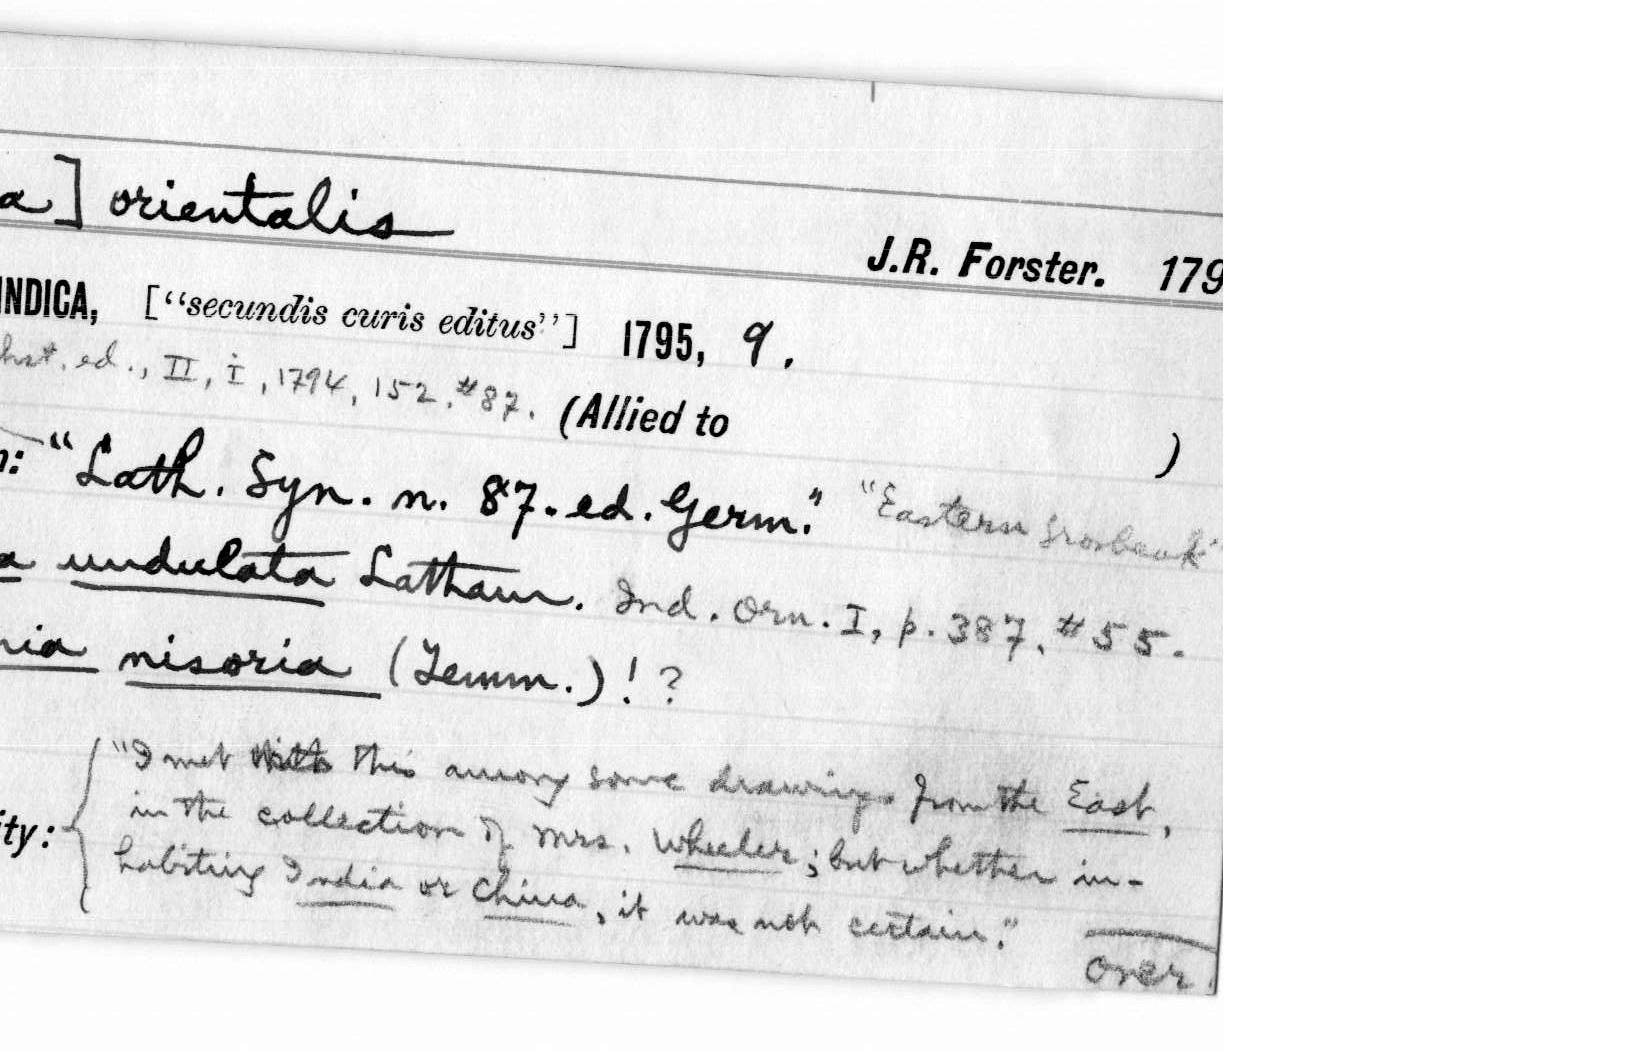 a] orientalis
J.R. Forster. 179
INDICA, ["secundis curis editus"] 1795, 9.
hst. ed., II, i, 1794, 152, #87. (Allied to )
n: "Lath. Syn. n. 87. ed. Germ." "Eastern Grosbeak"
a undulata Latham. Ind. Orn. I, p. 387, #55.
nia nisoria (Temm.)!?
"I met with this among some drawings from the East,
ity: in the collection of Mrs. Wheeler; but whether in-
habiting India or China, it was not certain."
over.